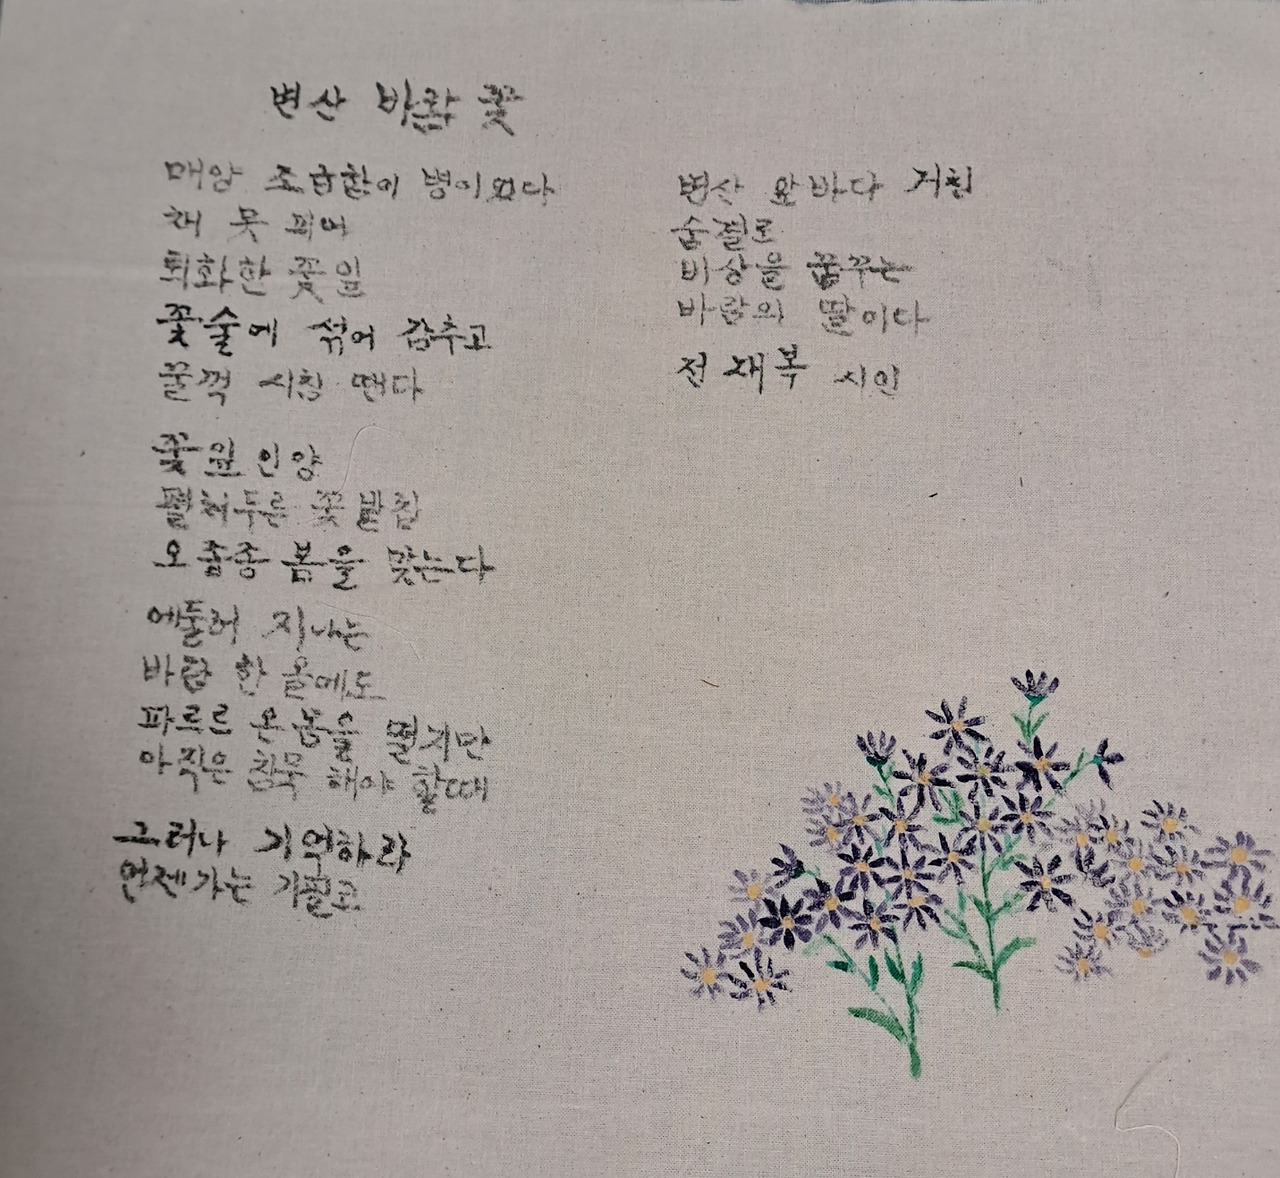 변산 바람 꽃
매양 조급함이 병이었다
채 못 피어
퇴화한 꽃잎
꽃술에 섞어 감추고
꿀꺽 시침 땐다
꽃잎인양
펼쳐두른 꽃받침
오종종 봄을 맞는다
에둘러 지나는
바람 한 올에도
파르르 온몸을 떨지만
아직은 침묵 해야 할때
그러나 기억하라
언젠가는 기필코
변산 앞바다 거친
숨결로
비상을 꿈꾸는
바람의 딸이다
전재복 시인